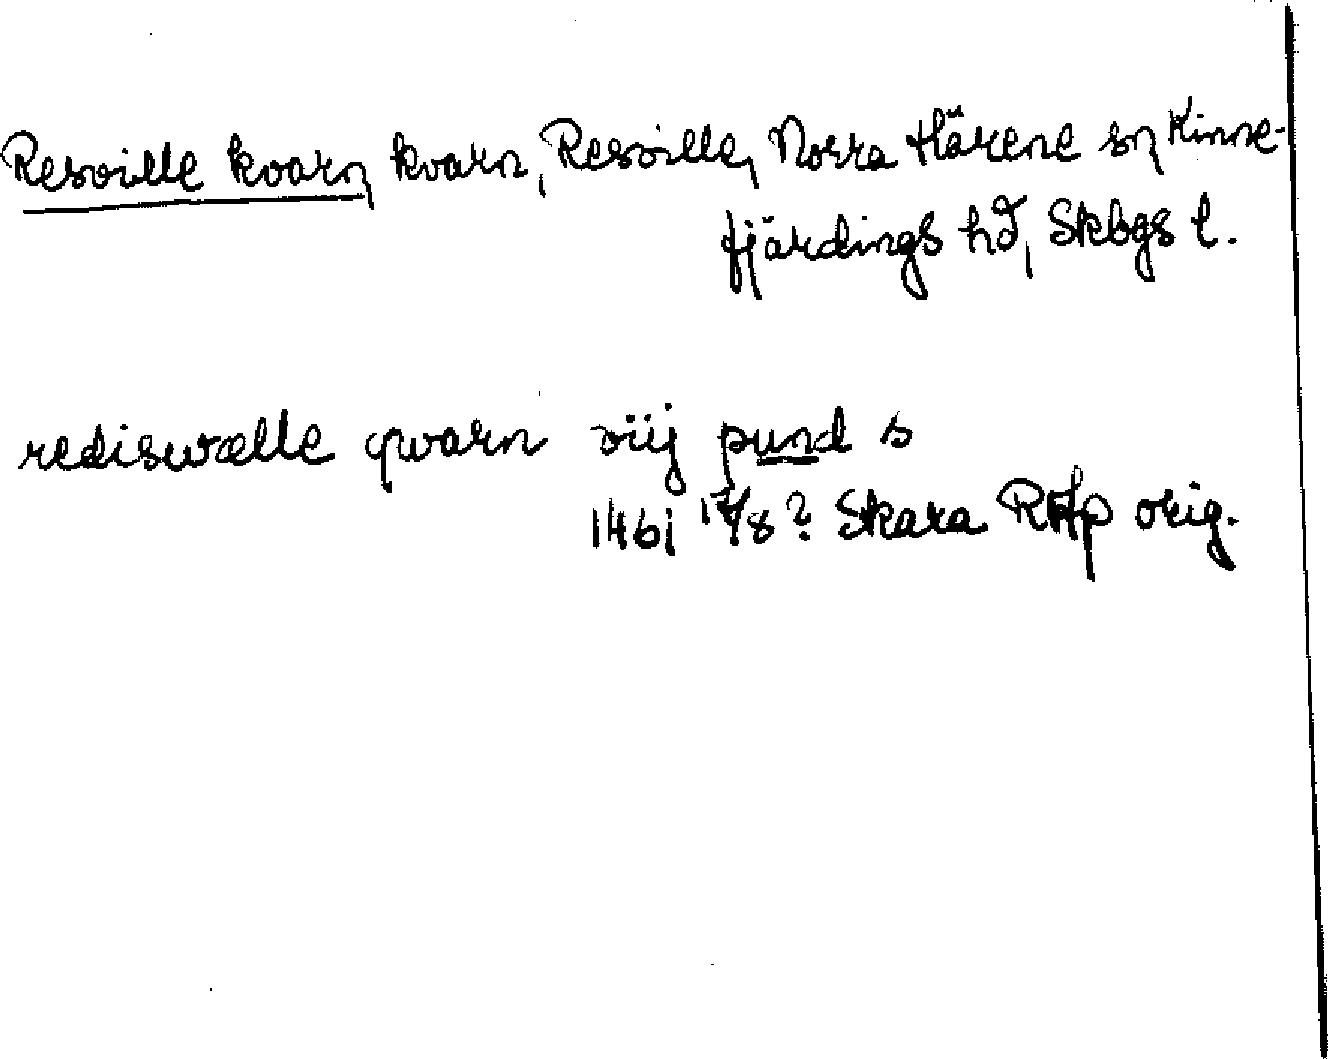 Resville kvarn, kvarn, Resville, Norra Härene sn, Kinne-
fjärdings hd, Skbgs l.
rediswælle qwarn viij pund s
1461 17/8? Skara RAp orig.